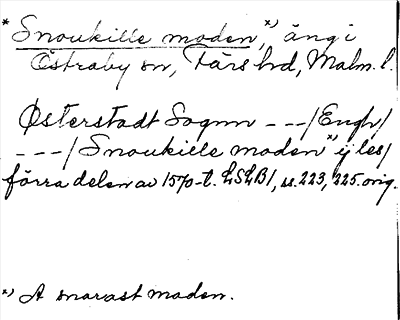 * Snoukille moden,*) äng i
Östraby sn, Färs hd, Malm. l.
Østerstadt Sognn - - -/Engh/
- - -/ Snoukille moden*) ij les/
förra delen av 1570-t. LSLB1, ss. 223, 225. orig.
*) A snarast maden.